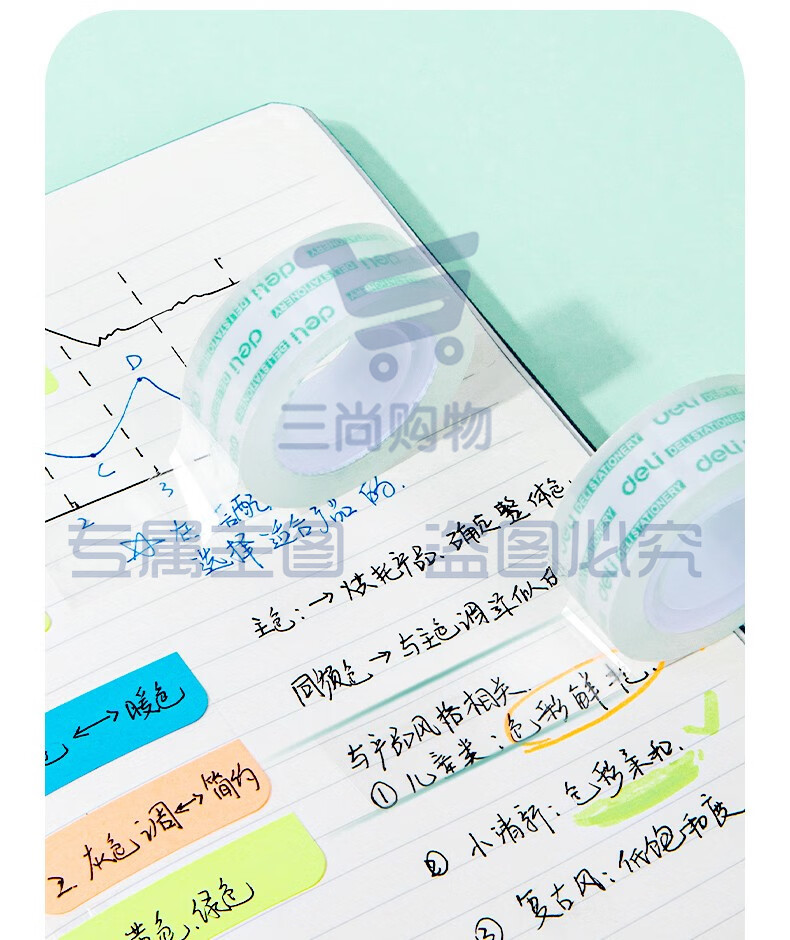 deli DELI STATIONERY
deli DELI STATIONERY
三尚购物
D
C
2
3
☆在 搭配
选择适合产品的.
专属主图 盗图必究
主色:→烘托产品、确定整体色
同频色→与主色调靠近似日
与产品风格相关.
①儿童类:色彩鲜艳.
②小清新:色彩柔和.
③复古风:低饱和度
色↔暖色
2.灰色调↔简约
黄色、绿色